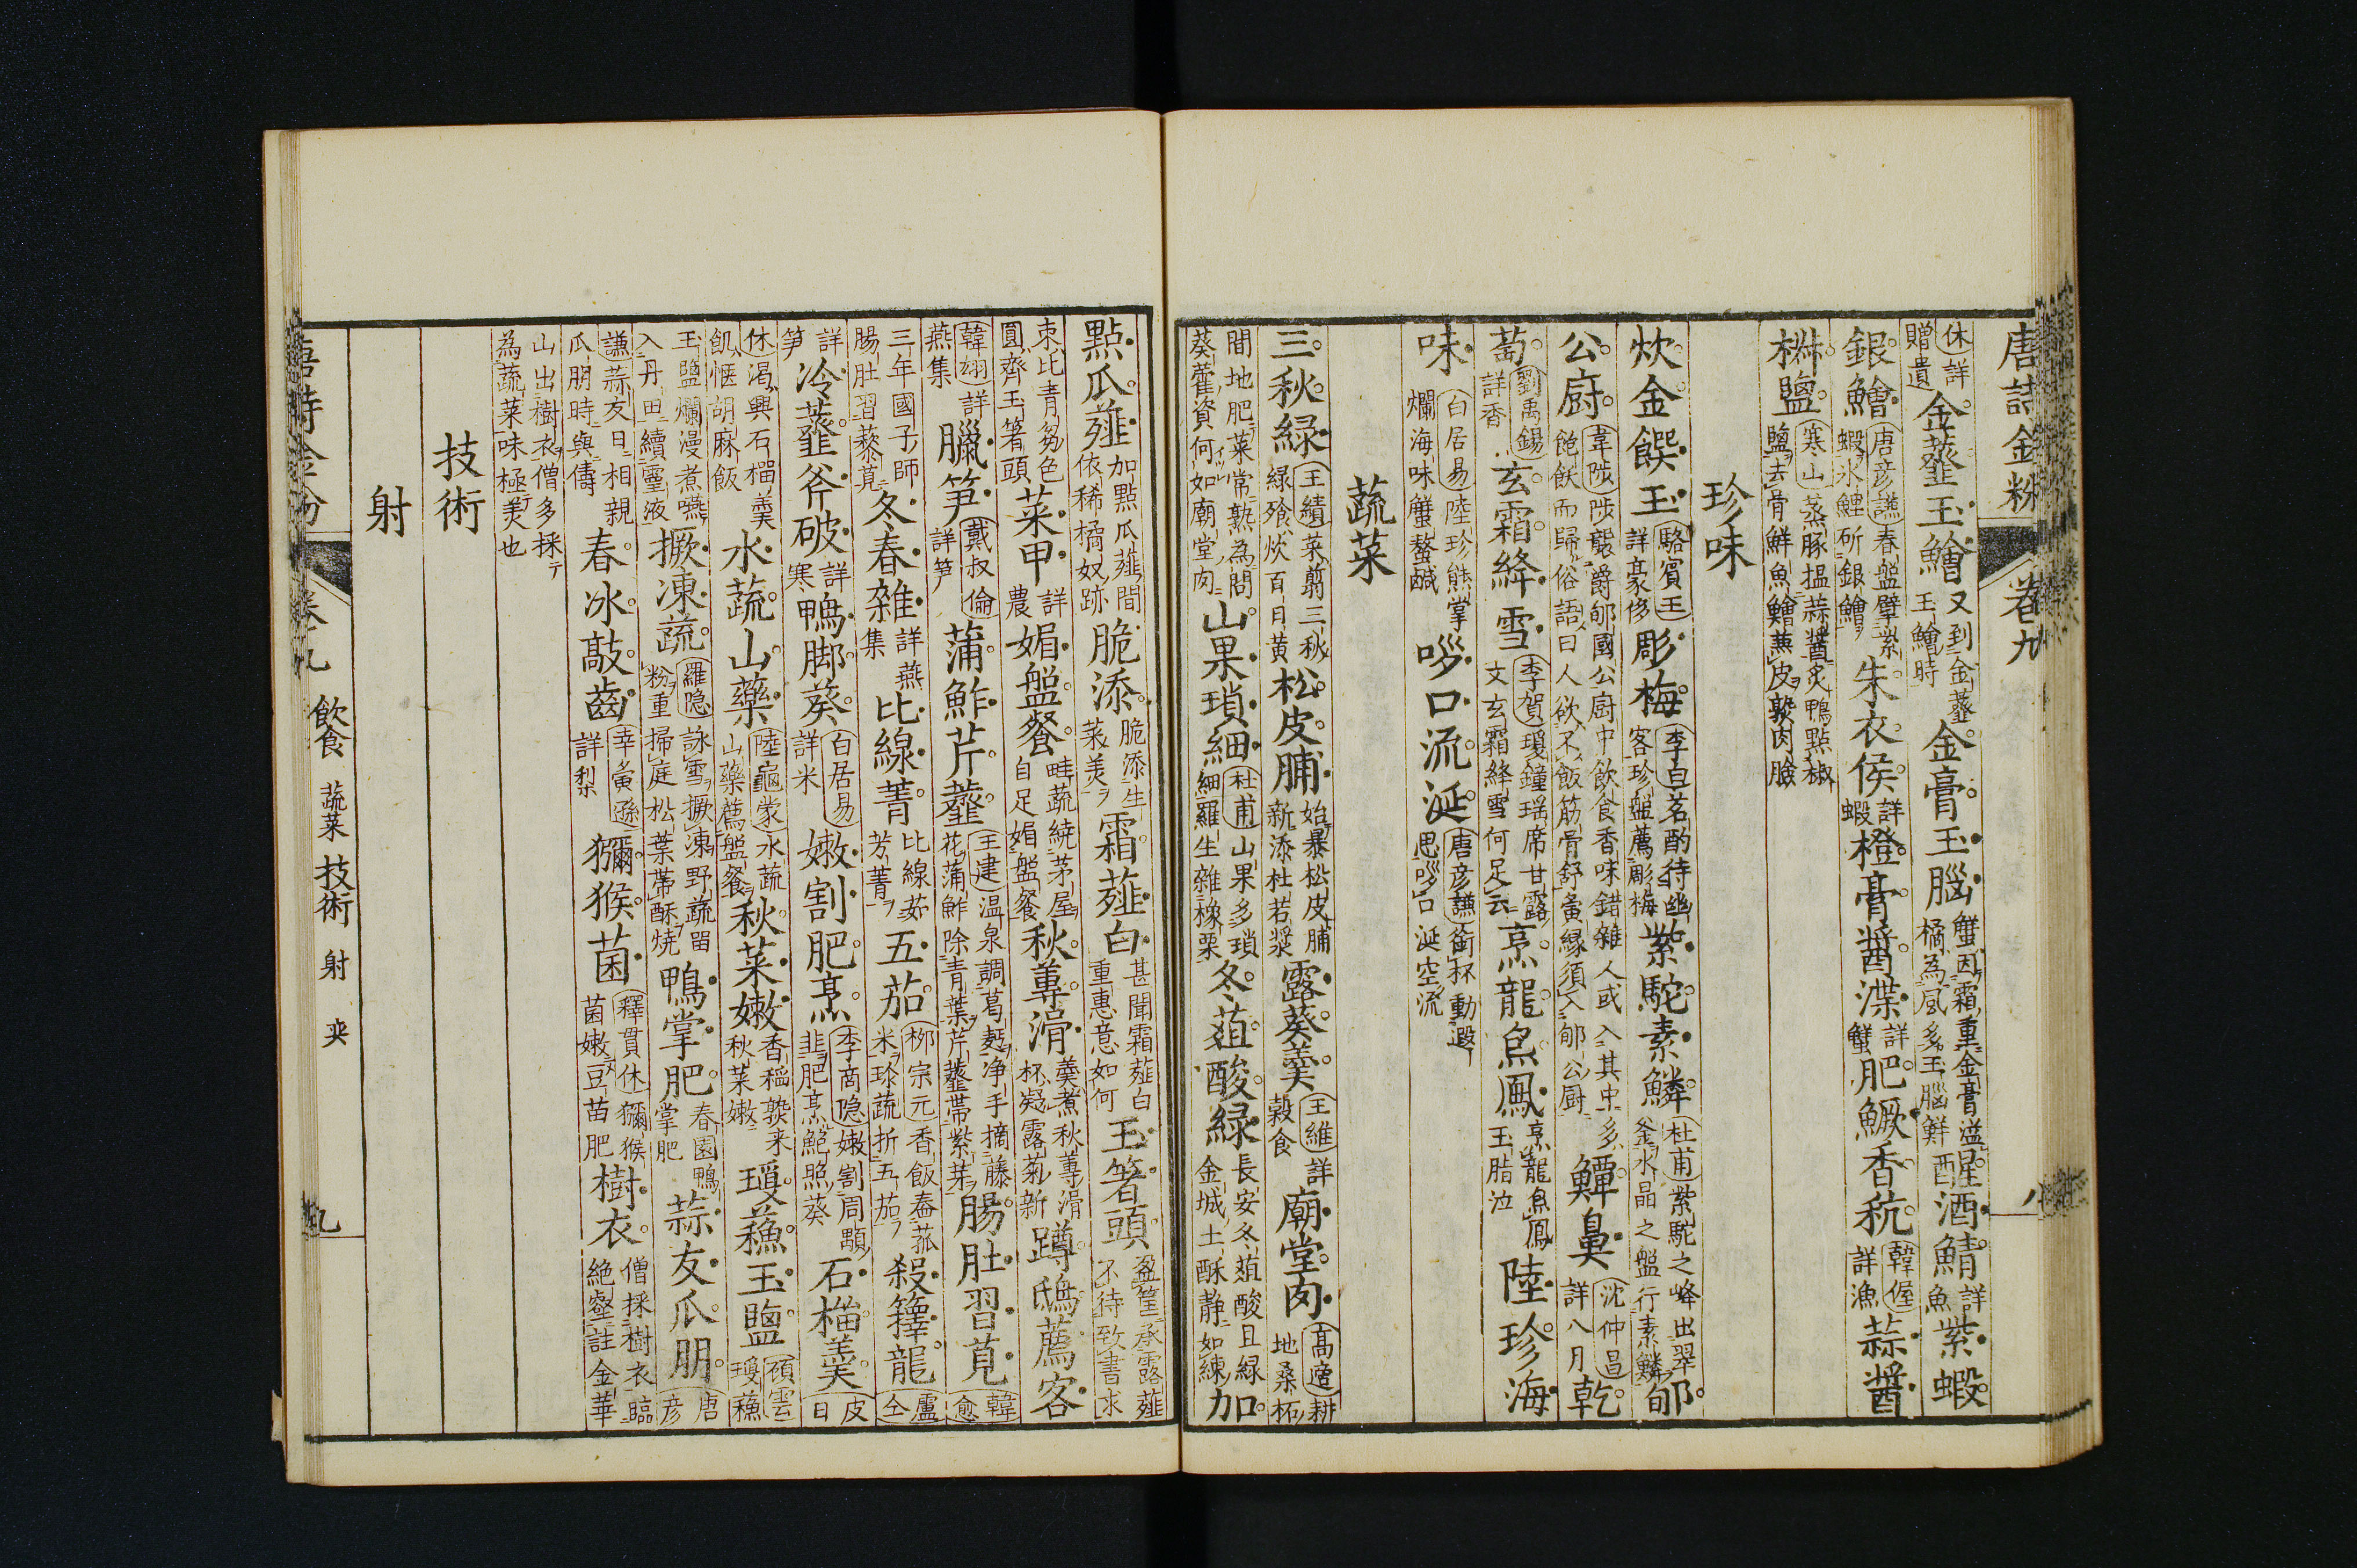 唐詩金粉 卷九 八
休詳贈遺 金虀玉鱠 又到金虀玉鱠時 金膏玉腦 蟹因霜重金膏溢橘為風多玉腦鮮 醒酒鯖 詳魚 紫蝦
銀鱠 唐彦謙春盤擘紫蝦冰鯉斫銀鱠 朱衣侯 詳蝦 橙膏醬渫 詳蟹 肥鱖香秔 韓偓詳漁 蒜醬
椒鹽 寒山蒸豚搵蒜醬炙鴨點椒鹽去骨鮮魚鱠兼皮熟肉臉
珍味
炊金饌玉 駱賓王詳豪侈 彫梅 李白茗酌待幽客珍盤薦彫梅 紫駝素鱗 杜甫紫駝之峰出翠釜水晶之盤行素鱗 郇
公廚 韋陟陟襲爵郇國公廚中飲食香味錯雜人或入其中多飽飫而歸俗語曰人欲不飯筋骨舒夤縁須入郇公厨 鱓鼻 沈仲昌詳八月 乾
萄 劉禹錫詳香 玄霜絳雪 李賀瓊鐘瑤席甘露文玄霜絳雪何足云 烹龍炰鳳 烹龍炰鳳玉脂泣 陸珍海
味 白居易陸珍熊掌爛海味蟹螯鹹 哆口流涎 唐彦謙銜杯動遐思哆口涎空流
蔬菜
三秋緑 王績菜剪三秋緑飱炊百日黄 松皮脯 始暴松皮脯新添杜若漿 露葵羹 王維詳穀食 廟堂肉 高適耕地桑柘
間地肥菜常熟為問葵藿資何如廟堂肉 山果瑣細 杜甫山果多瑣細羅生雜橡栗 冬葅酸緑 長安冬葅酸且緑金城土酥静如練 加
點瓜薤 加點瓜薤間依稀橘奴跡 脆添 脆添生菜美 霜薤白 甚聞霜薤白重惠意如何 玉箸頭 盈筐承露薤不待致書求
束比青芻色圓齊玉箸頭 菜甲 詳農 媚盤餐 畦蔬繞茅屋自足媚盤餐 秋蓴滑 羹煮秋蓴滑杯凝露菊新 蹲鴟薦客
韓翃詳燕集 臘笋 戴叔倫詳笋 蒲鮓芹虀 王建温泉調葛麪净手摘藤花蒲鮓除青葉芹虀帶紫芽 腸肚習莧 韓愈
三年國子師腸肚習藜莧 冬春雜 詳燕集 比線菁 比線茹芳菁 五茄 柳宗元香飯舂菰米珍蔬折五茄 殺籜龍 盧仝
詳笋 冷虀斧破 詳寒 鴨脚葵 白居易詳米 嫩割肥烹 李商隐嫩割周顒韭肥烹鮑照葵 石橊羹 皮日
休渴興石榴羹飢愜胡麻飯 水蔬山藥 陸龜蒙水蔬山藥薦盤餐 秋菜嫩 香稲熟来秋菜嫩 瓊蘓玉鹽 顧雲瓊蘓
玉鹽爛漫煮嚥入丹田續靈液 撅凍蔬 羅隐詠雪撅凍野蔬留粉重掃庭松葉帶酥燒 鴨掌肥 春園鴨掌肥 蒜友瓜朋 唐彦
謙蒜友日相親瓜朋時與儔 春冰敲齒 幸夤遜詳梨 獼猴菌 釋貫休獼猴菌嫩豆苗肥 樹衣 僧採樹衣臨絶壑註金華
山出樹衣僧多採テ為蔬菜味極テ美也
技術
射
唐詩金粉 卷九 飲食 蔬菜 技術 射 奕 九